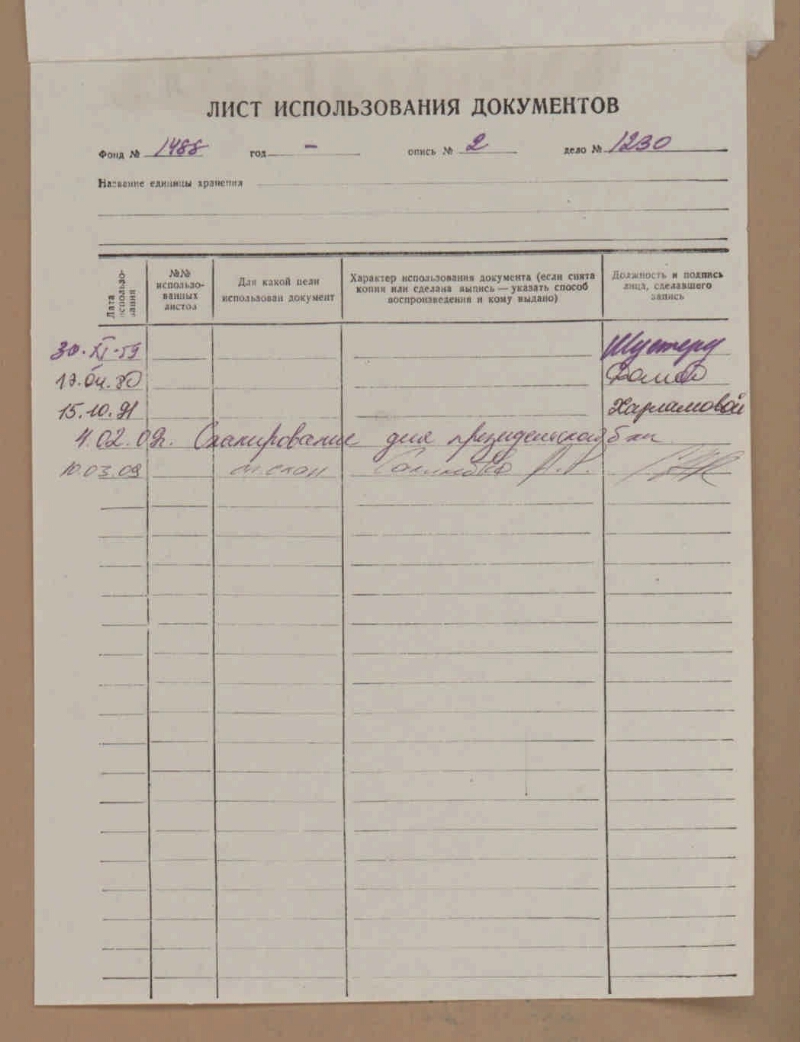 ЛИСТ ИСПОЛЬЗОВАНИЯ ДОКУМЕНТОВ
Фонд № 1488 год - опись № 2 дело № 1230
Название единицы хранения
Дата использования
№№ использованных листов
Для какой цели использован документ
Характер использования документа (если снята копия или сделана выпись — указать способ воспроизведения и кому выдано)
Должность и подпись лица, сделавшего запись
30.XI-59 Шустеру
17.04.80
15.10.91 Харламовой
4.02.09г. Сканирование для президентской б-ки
10.03.09